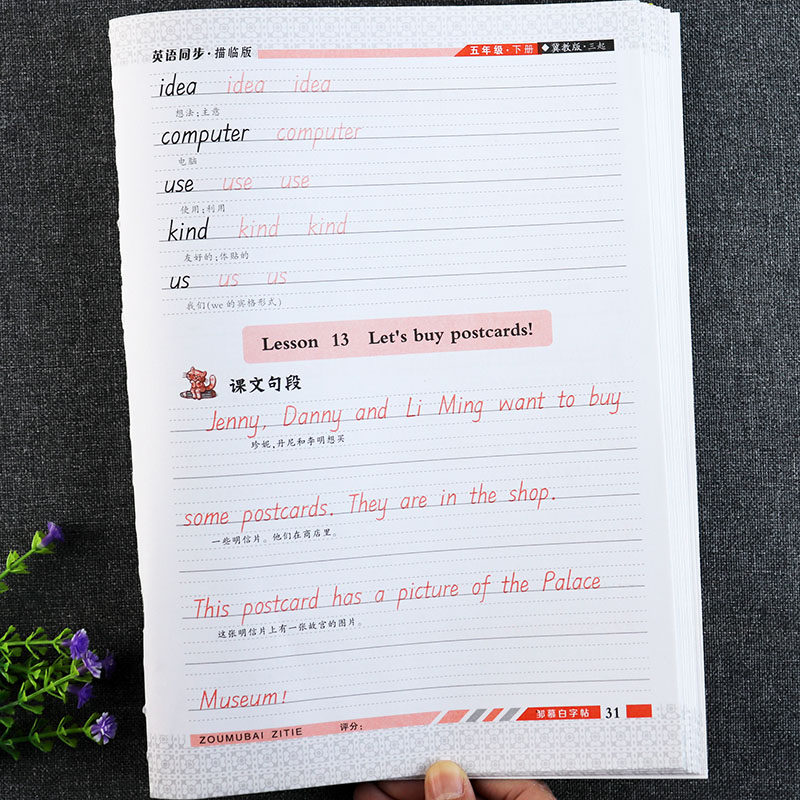 英语同步·描临版
五年级·下册 ◆冀教版·三起
idea idea idea
想法;主意
computer computer
电脑
use use use
使用;利用
kind kind kind
友好的;体贴的
us us us
我们(we的宾格形式)
Lesson 13 Let's buy postcards!
课文句段
Jenny, Danny and Li Ming want to buy
珍妮、丹尼和李明想买
some postcards. They are in the shop.
一些明信片。他们在商店里。
This postcard has a picture of the Palace
这张明信片上有一张故宫的图片。
Museum!
ZOUMUBAI ZITIE 评分: 邹慕白字帖 31